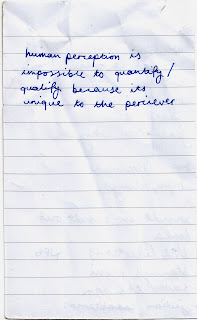 human perception is
impossible to quantify/
qualify because its
unique to the perciever